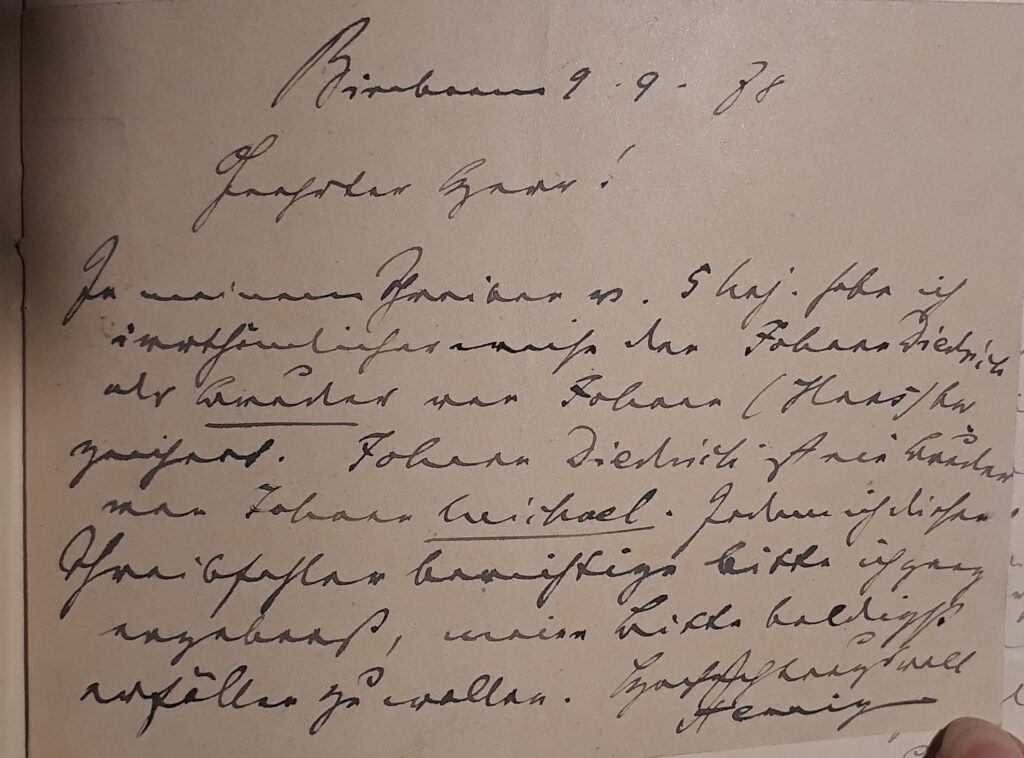 Birnbaum 9.9.78
Geehrter Herr!
In meinem Schreiben v. 5 habe ich
irrthümlicherweise den Johann Diedrich
als Bruder von Johann (Hans) be
zeichnet. Johann Diedrich ist ein Bruder
von Johann Michael. Indem ich diesen
Schreibfehler berichtige bitte ich ganz
ergebenst, meine Bitte baldigst
erfüllen zu wollen. Hochachtungsvoll
Hennig